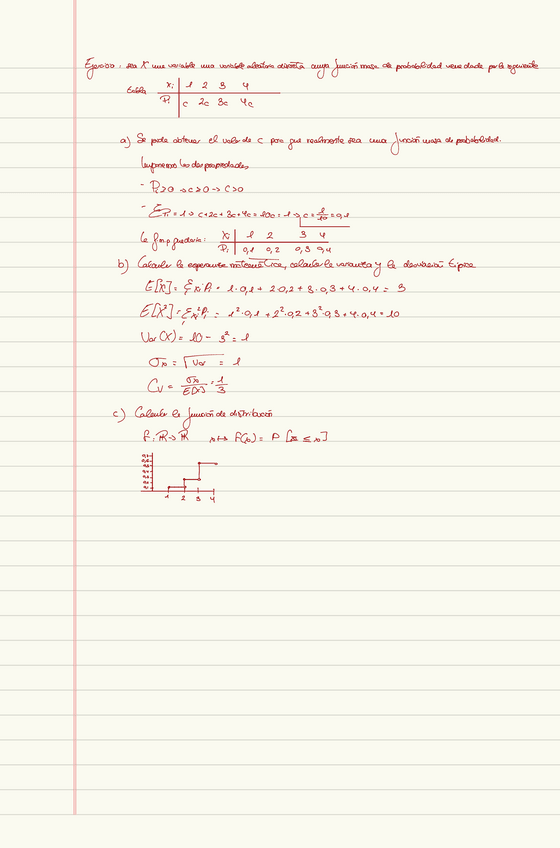 Ejercicio: sea X una variable una variable aleatoria discreta cuya función masa de probabilidad viene dada por la siguiente
tabla xi 1 2 3 4
Pi c 2c 3c 4c
a) Se pide obtener el valor de c para que realmente sea una función masa de probabilidad.
Imponemos las dos propiedades
- Pi ≥ 0 → c ≥ 0 → c > 0
- ΣPi = 1 → c + 2c + 3c + 4c = 10c = 1 → c = 1/10 = 0,1
La f.m.p quedaría: Xi 1 2 3 4
Pi 0,1 0,2 0,3 0,4
b) Calcular la esperanza matemática, calcular la varianza y la desviación típica
E[X] = Σ xi Pi = 1·0,1 + 2·0,2 + 3·0,3 + 4·0,4 = 3
E[X²] = Σ xi² Pi = 1²·0,1 + 2²·0,2 + 3²·0,3 + 4·0,4 = 10
Var(X) = 10 - 3² = 1
σx = √Var = 1
CV = σx/E[X] = 1/3
c) Calcular la función de distribución
F: ℝ → ℝ x ↦ F(x) = P[X ≤ x]
1 2 3 4